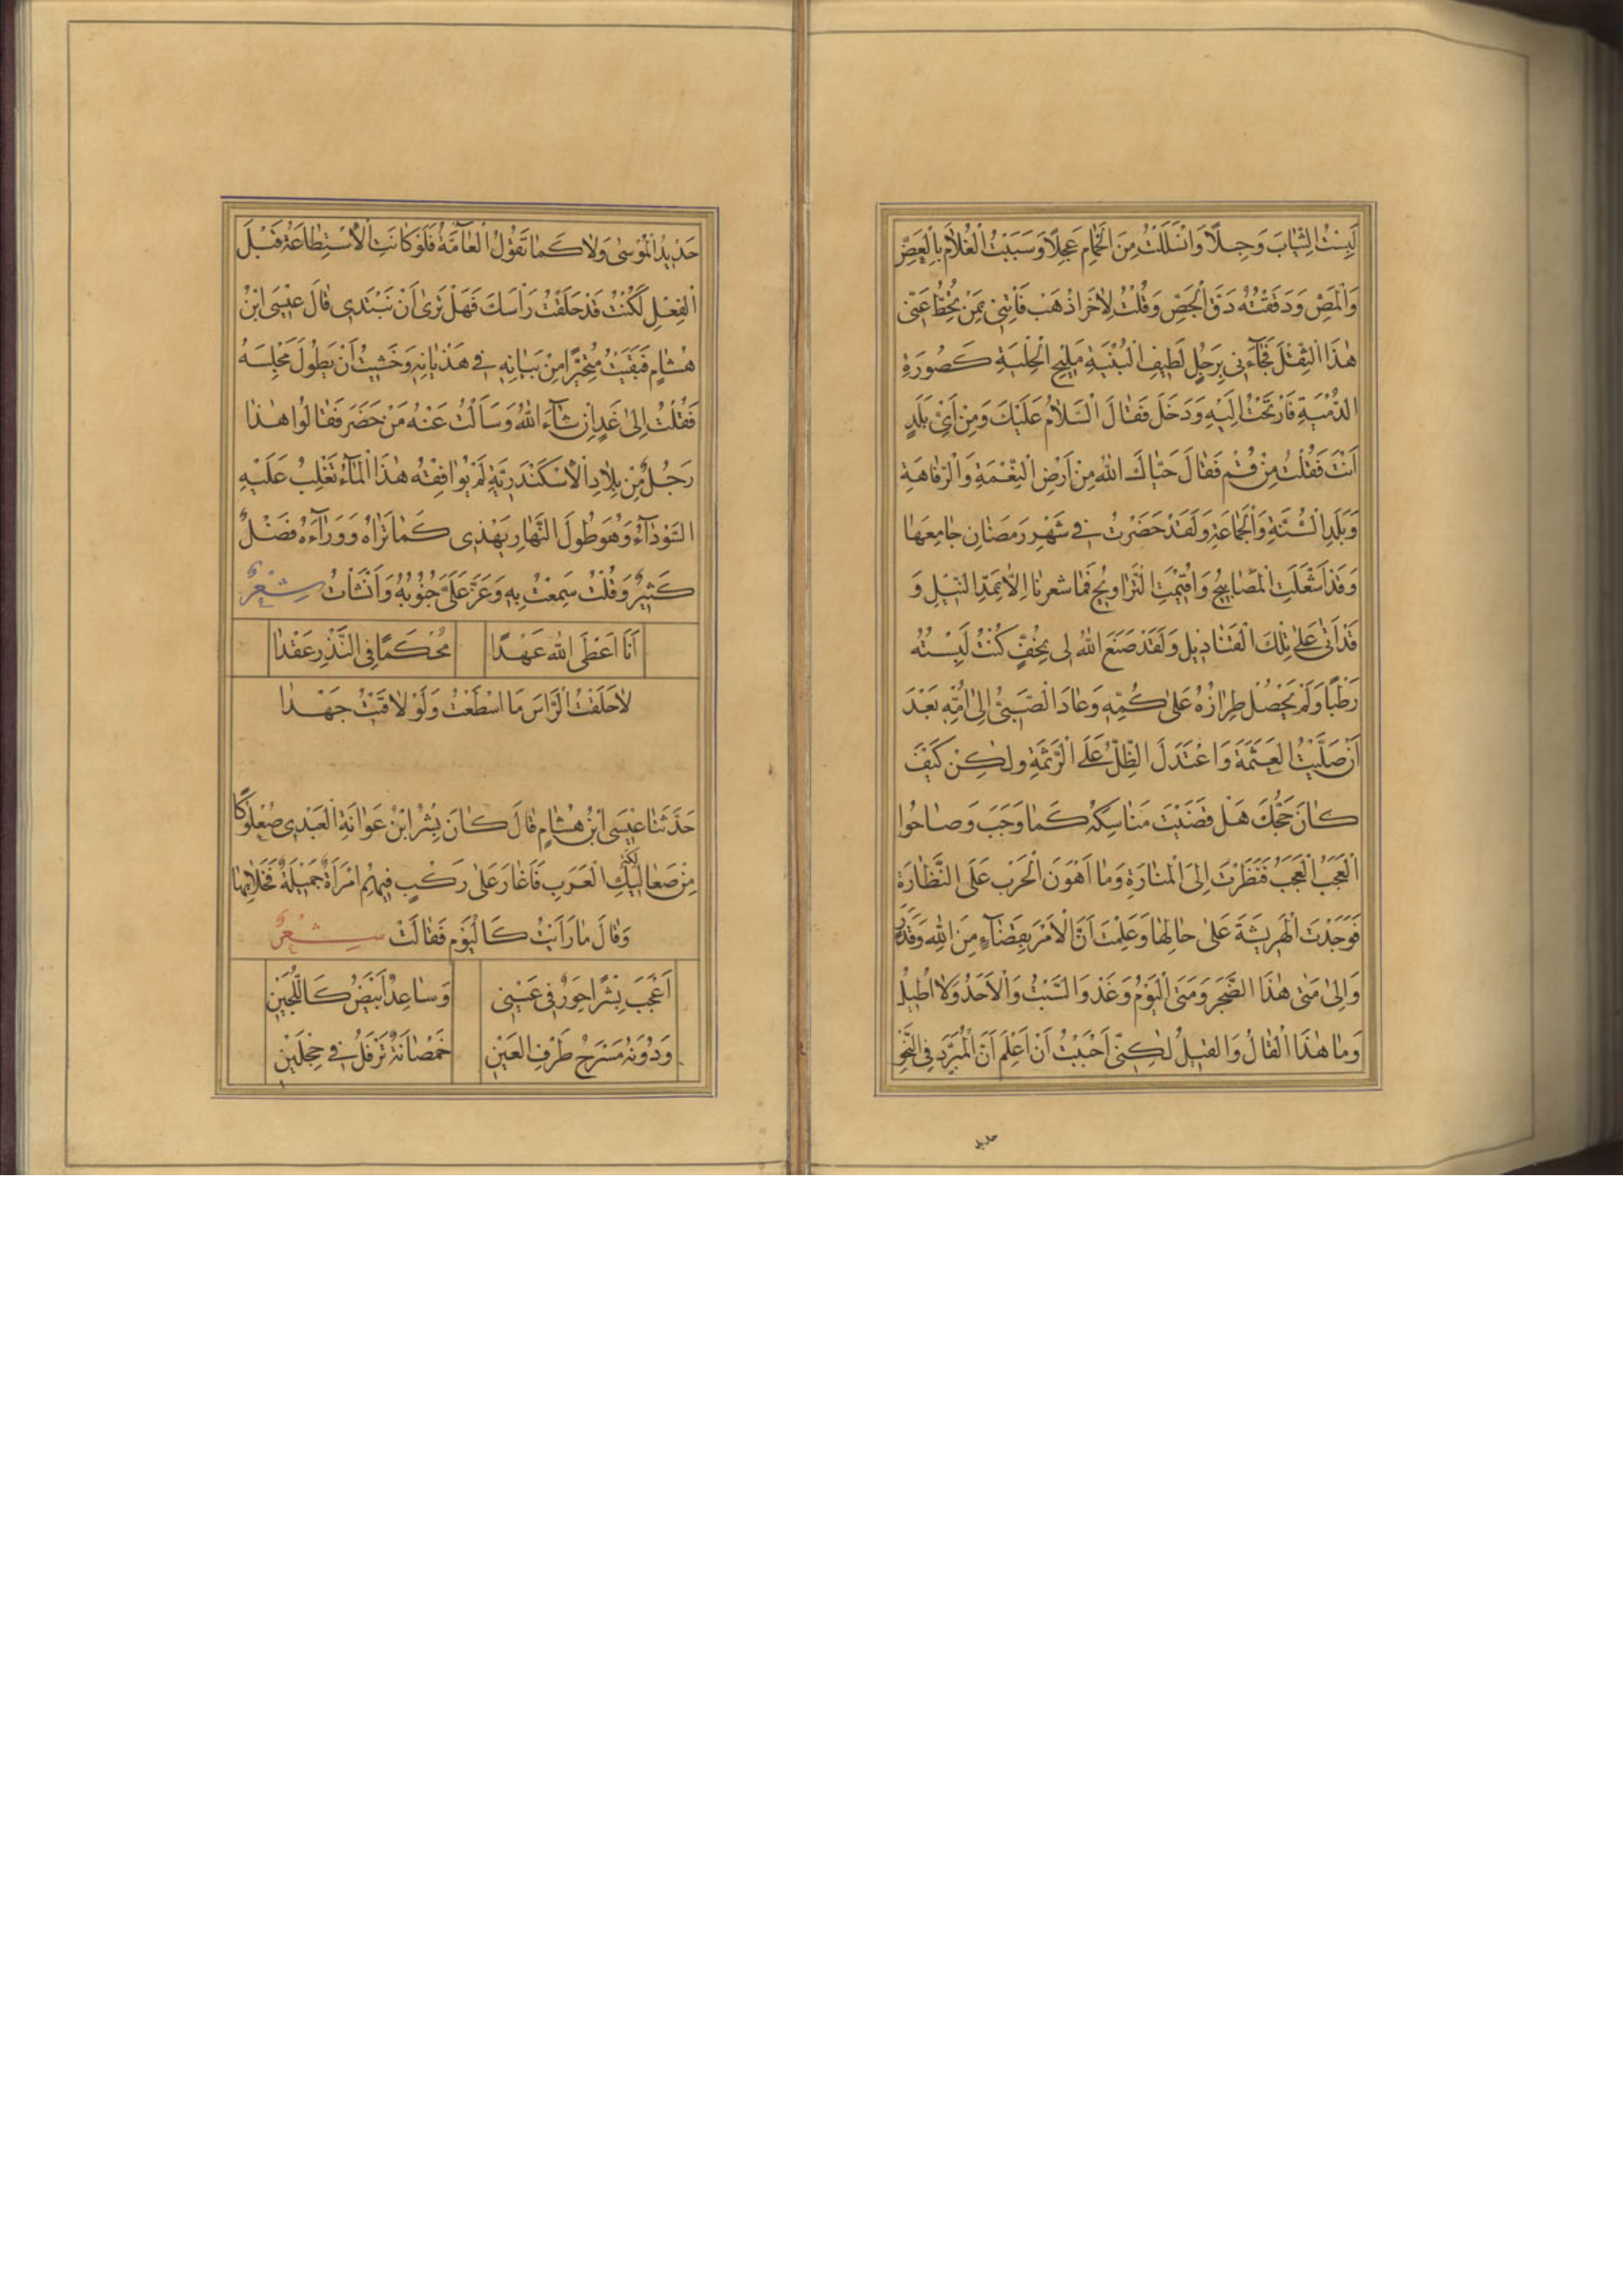 لَبِسْتُ الثِّيَابَ وَجِلًا وَانْسَلَلْتُ مِنَ الْحَمَّامِ عَجِلًا وَسَبَبْتُ الْغُلَامَ بِالْعَضِّ
وَالْمَصِّ وَدَقَقْتُهُ دَقَّ الْجِصِّ وَقُلْتُ لِآخَرَ اذْهَبْ فَأْتِنِي بِمَنْ يَحُطُّ عَنِّي
هٰذَا الثِّقْلَ فَجَاءَنِي بِرَجُلٍ لَطِيفِ الْبُنْيَةِ مَلِيحِ الْحِلْيَةِ كَصُورَةِ
الدُّمْيَةِ فَارْتَحْتُ إِلَيْهِ وَدَخَلَ فَقَالَ السَّلَامُ عَلَيْكَ وَمِنْ أَيِّ بَلَدٍ
أَنْتَ فَقُلْتُ مِنْ قُمْ فَقَالَ حَيَّاكَ اللهُ مِنْ أَرْضِ النِّعْمَةِ وَالرَّفَاهَةِ
وَبَلَدِ السُّنَّةِ وَالْجَمَاعَةِ وَلَقَدْ حَضَرْتُ فِي شَهْرِ رَمَضَانَ جَامِعَهَا
وَقَدْ اَشْعَلَتِ الْمَصَابِيحُ وَاُقِيمَتِ التَّرَاوِيحُ فَمَا شعرنَا اِلَّا بِمَدِّ النِّيلِ وَ
قَدْ اَتٰى عَلٰى تِلْكَ الْقَنَادِيلِ وَلَقَدْ صَنَعَ اللهُ لِي بِخُفٍّ كُنْتُ لَبِسْتُهُ
رَطْبًا وَلَمْ يَحْصُلْ طِرَازُهُ عَلٰى كُمِّهِ وَعَادَ الصَّبِيُّ اِلٰى اُمِّهِ بَعْدَ
اَنْ صَلَّيْتُ الْعَتَمَةَ وَاعْتَدَلَ الظِّلُّ عَلَى الرَّثَمَةِ وَلٰكِنْ كَيْفَ
كَانَ حَجُّكَ هَلْ قَضَيْتَ مَنَاسِكَهُ كَمَا وَجَبَ وَصَاحُوا
الْعَجَبُ الْعَجَبُ فَنَظَرْتُ اِلَى الْمَنَارَةِ وَمَا اَهْوَنَ الْحَرْبَ عَلَى النَّظَّارَةِ
فَوَجَدْتُ الْهَرِيسَةَ عَلٰى حَالِهَا وَعَلِمْتُ اَنَّ الْاَمْرَ بِقَضَاءٍ مِنَ اللهِ وَقَدَرٍ
وَاِلٰى مَتٰى هٰذَا الضَّجَرُ وَمَتَى الْيَوْمُ وَغَدٌ وَالسَّبْتُ وَالْاَحَدُ وَلَا اُطِيلُ
وَمَا هٰذَا الْقَالُ وَالْقِيلُ لٰكِنِّي اَحْبَبْتُ اَنْ اَعْلَمَ اَنَّ الْمُبَرَّدَ فِي النَّحْوِ
حديد
حَدِيدُ الْمُوسٰى وَلَا كَمَا تَقُولُ الْعَامَّةُ فَلَوْ كَانَتِ الْاِسْتِطَاعَةُ قَبْلَ
الْفِعْلِ لَكُنْتُ قَدْ حَلَقْتُ رَأْسَكَ فَهَلْ تَرٰى اَنْ نَبْتَدِي قَالَ عِيسَى ابْنُ
هِشَامٍ فَبَقِيتُ مُتَحَيِّرًا مِنْ بَيَانِهِ فِي هَذَيَانِهِ وَخَشِيتُ اَنْ يَطُولَ مَجْلِسُهُ
فَقُلْتُ اِلٰى غَدٍ اِنْ شَاءَ اللهُ وَسَاَلْتُ عَنْهُ مَنْ حَضَرَ فَقَالُوا هٰذَا
رَجُلٌ مِنْ بِلَادِ الْاِسْكَنْدَرِيَّةِ لَمْ يُوَافِقْهُ هٰذَا الْمَاءُ تَغْلِبُ عَلَيْهِ
السَّوْدَاءُ وَهُوَ طُولَ النَّهَارِ يَهْذِي كَمَا تَرَاهُ وَوَرَاءَهُ فَضْلٌ
كَثِيرٌ وَقُلْتُ سَمِعْتُ بِهِ وَعَزَّ عَلَيَّ جُنُونُهُ وَاَنْشَاْتُ شِعْرٌ
اَنَا اَعْطَى اللهَ عَهْدًا مُحْكَمًا فِي النَّذْرِ عَقْدَا
لَا حَلَقْتُ الرَّاْسَ مَا اسْطَعْتُ وَلَوْ لَاقَيْتُ جَهْدَا
حَدَّثَنَا عِيسَى ابْنُ هِشَامٍ قَالَ كَانَ بِشْرُ ابْنُ عَوَانَةَ الْعَبْدِي صُعْلُوكًا
مِنْ صَعَالِيكِ الْعَرَبِ فَاَغَارَ عَلٰى رَكْبٍ فِيهِمْ امْرَاَةٌ جَمِيلَةٌ فَخَلَا بِهَا
وَقَالَ مَا رَاَيْتُ كَالْيَوْمِ فَقَالَتْ شِعْرٌ
اَعْجَبَ بِشْرًا حَوَرٌ فِي عَيْنِي وَسَاعِدٌ اَبْيَضُ كَاللُّجَيْنِ
وَدُونَهُ مَسْرَحُ طَرْفِ الْعَيْنِ خَمْصَانَةٌ تَرْفُلُ فِي حِجْلَيْنِ